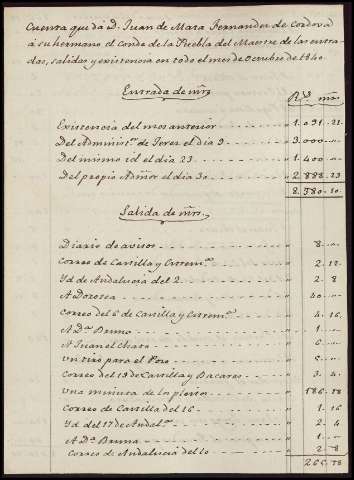 Cuenta que dá D. Juan de Mata Fernandez de Cordova
á su hermano el Conde de la Puebla del Maestre de las entra-
das, salidas y existencia en todo el mes de Octubre de 1840.
Entrada de mrs.
R.s mrs.
Existencia del mes anterior " 1.091.. 21.
Del Adminis.or de Jerez el dia 3 " 3.000.. "
Del mismo id el dia 23 " 1.400.. "
Del propio Admor el dia 30 " 2.888.. 23
8.380..10.
Salida de mrs.
Diario de avisos " 8..
Correo de Castilla y Estrem.a " 2.. 12.
Yd de Andalucia del 2 " 2.. 8
A Dorotea " 40..
Correo del 6 de Castilla y Estrem.a " 4.. 16.
A D.a Bruna " 1..
A Juan el Chato " 6..
Un tiro para el Pozo
Correo del 13 de Castilla y Bacares " 3.. 4.
Una minuta de los pleitos " 186..
Correo de Castilla del 16 " 1.. 16
Yd del 17 de Andal.a " 2.. 4
A D.a Bruna " 1..
Correo de Andalucia del " 2.. 8